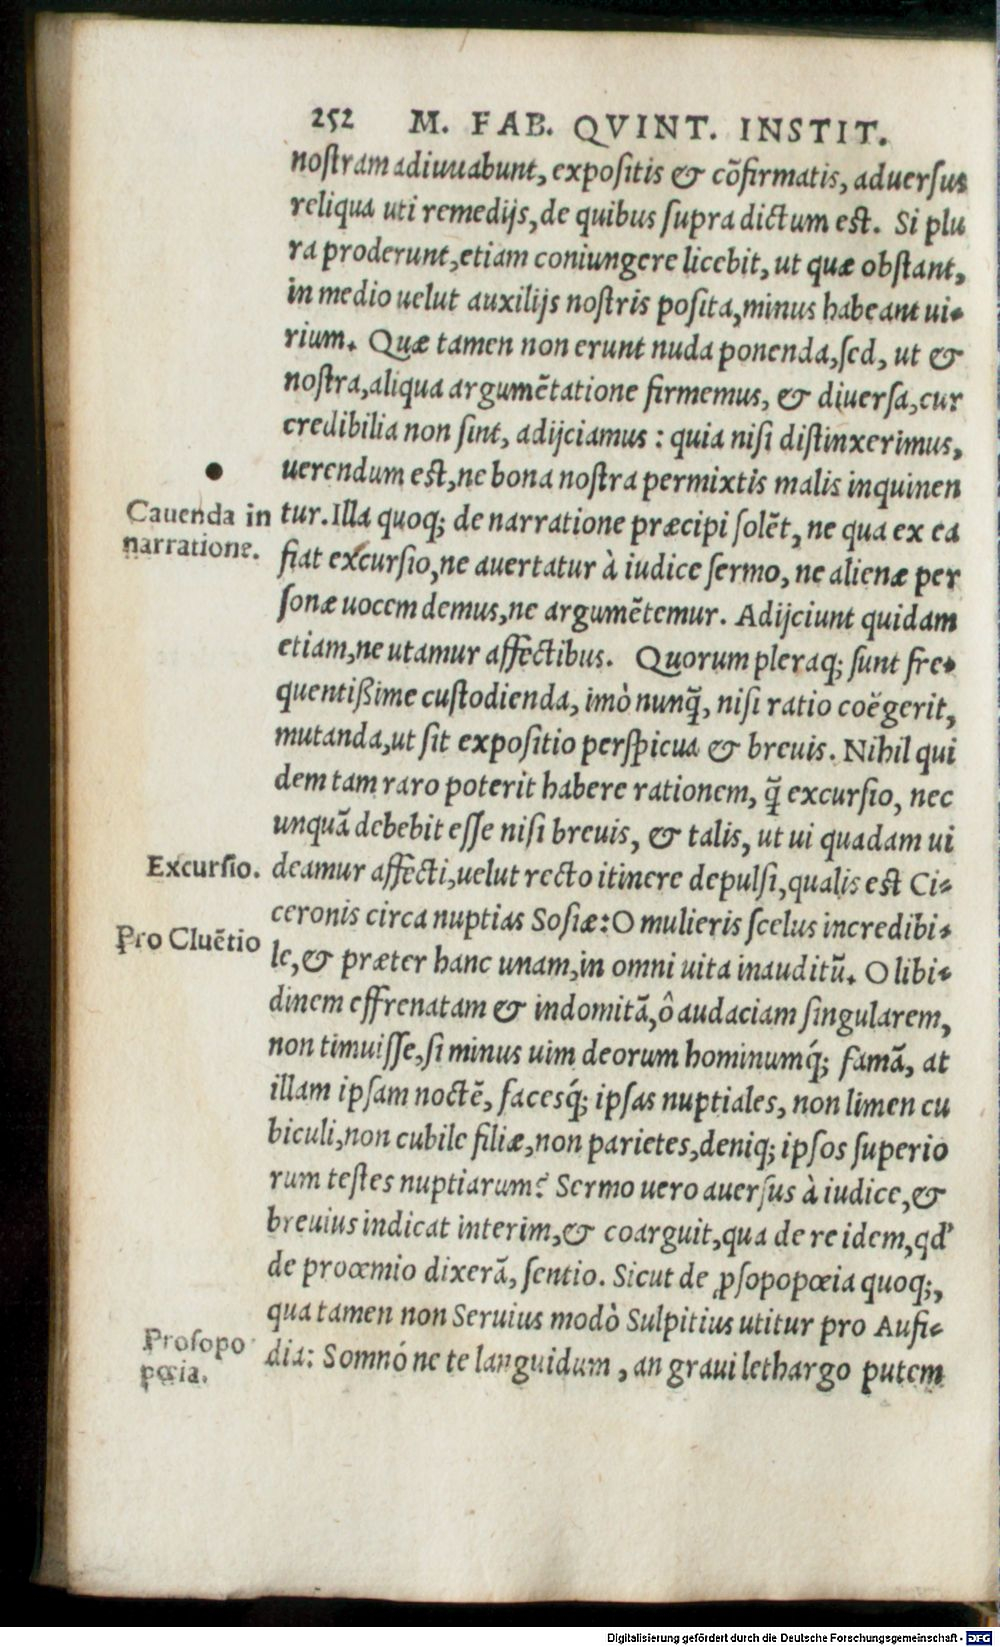 252 M. FAB. QVINT. INSTIT.
noſtram adiuuabunt, expoſitis & cõfirmatis, aduerſus
reliqua uti remedijs, de quibus ſupra dictum eſt. Si plu
ra proderunt, etiam coniungere licebit, ut quæ obſtant,
in medio uelut auxilijs noſtris poſita, minus habeant ui-
rium. Quæ tamen non erunt nuda ponenda, ſed, ut &
noſtra, aliqua argumẽtatione firmemus, & diuerſa, cur
credibilia non ſint, adijciamus : quia niſi diſtinxerimus,
uerendum eſt, ne bona noſtra permixtis malis inquinen
Cauenda in
narratione.
tur. Illa quoq; de narratione præcipi ſolẽt, ne qua ex ea
fiat excurſio, ne auertatur à iudice ſermo, ne alienæ per
ſonæ uocem demus, ne argumẽtemur. Adijciunt quidam
etiam, ne utamur affectibus. Quorum pleraq; ſunt fre-
quentißime cuſtodienda, imò nunq̃, niſi ratio coëgerit,
mutanda, ut ſit expoſitio perſpicua & breuis. Nihil qui
dem tam raro poterit habere rationem, q̃ excurſio, nec
unquã debebit eſſe niſi breuis, & talis, ut ui quadam ui
Excurſio.
deamur affecti, uelut recto itinere depulſi, qualis eſt Ci-
ceronis circa nuptias Soſiæ: O mulieris ſcelus incredibi-
Pro Cluẽtio
le, & præter hanc unam, in omni uita inauditũ. O libi-
dinem effrenatam & indomitã, ô audaciam ſingularem,
non timuiſſe, ſi minus uim deorum hominumq́; famã, at
illam ipſam noctẽ, faceſq́; ipſas nuptiales, non limen cu
biculi, non cubile filiæ, non parietes, deniq; ipſos ſuperio
rum teſtes nuptiarum? Sermo uero auerſus à iudice, &
breuius indicat interim, & coarguit, qua de re idem, qd'
de proœmio dixerã, ſentio. Sicut de ꝓſopopœia quoq;,
qua tamen non Seruius modò Sulpitius utitur pro Aufi-
Proſopo
pœia.
dia: Somnóne te languidum, an graui lethargo putem
Digitalisierung gefördert durch die Deutsche Forschungsgemeinschaft - DFG